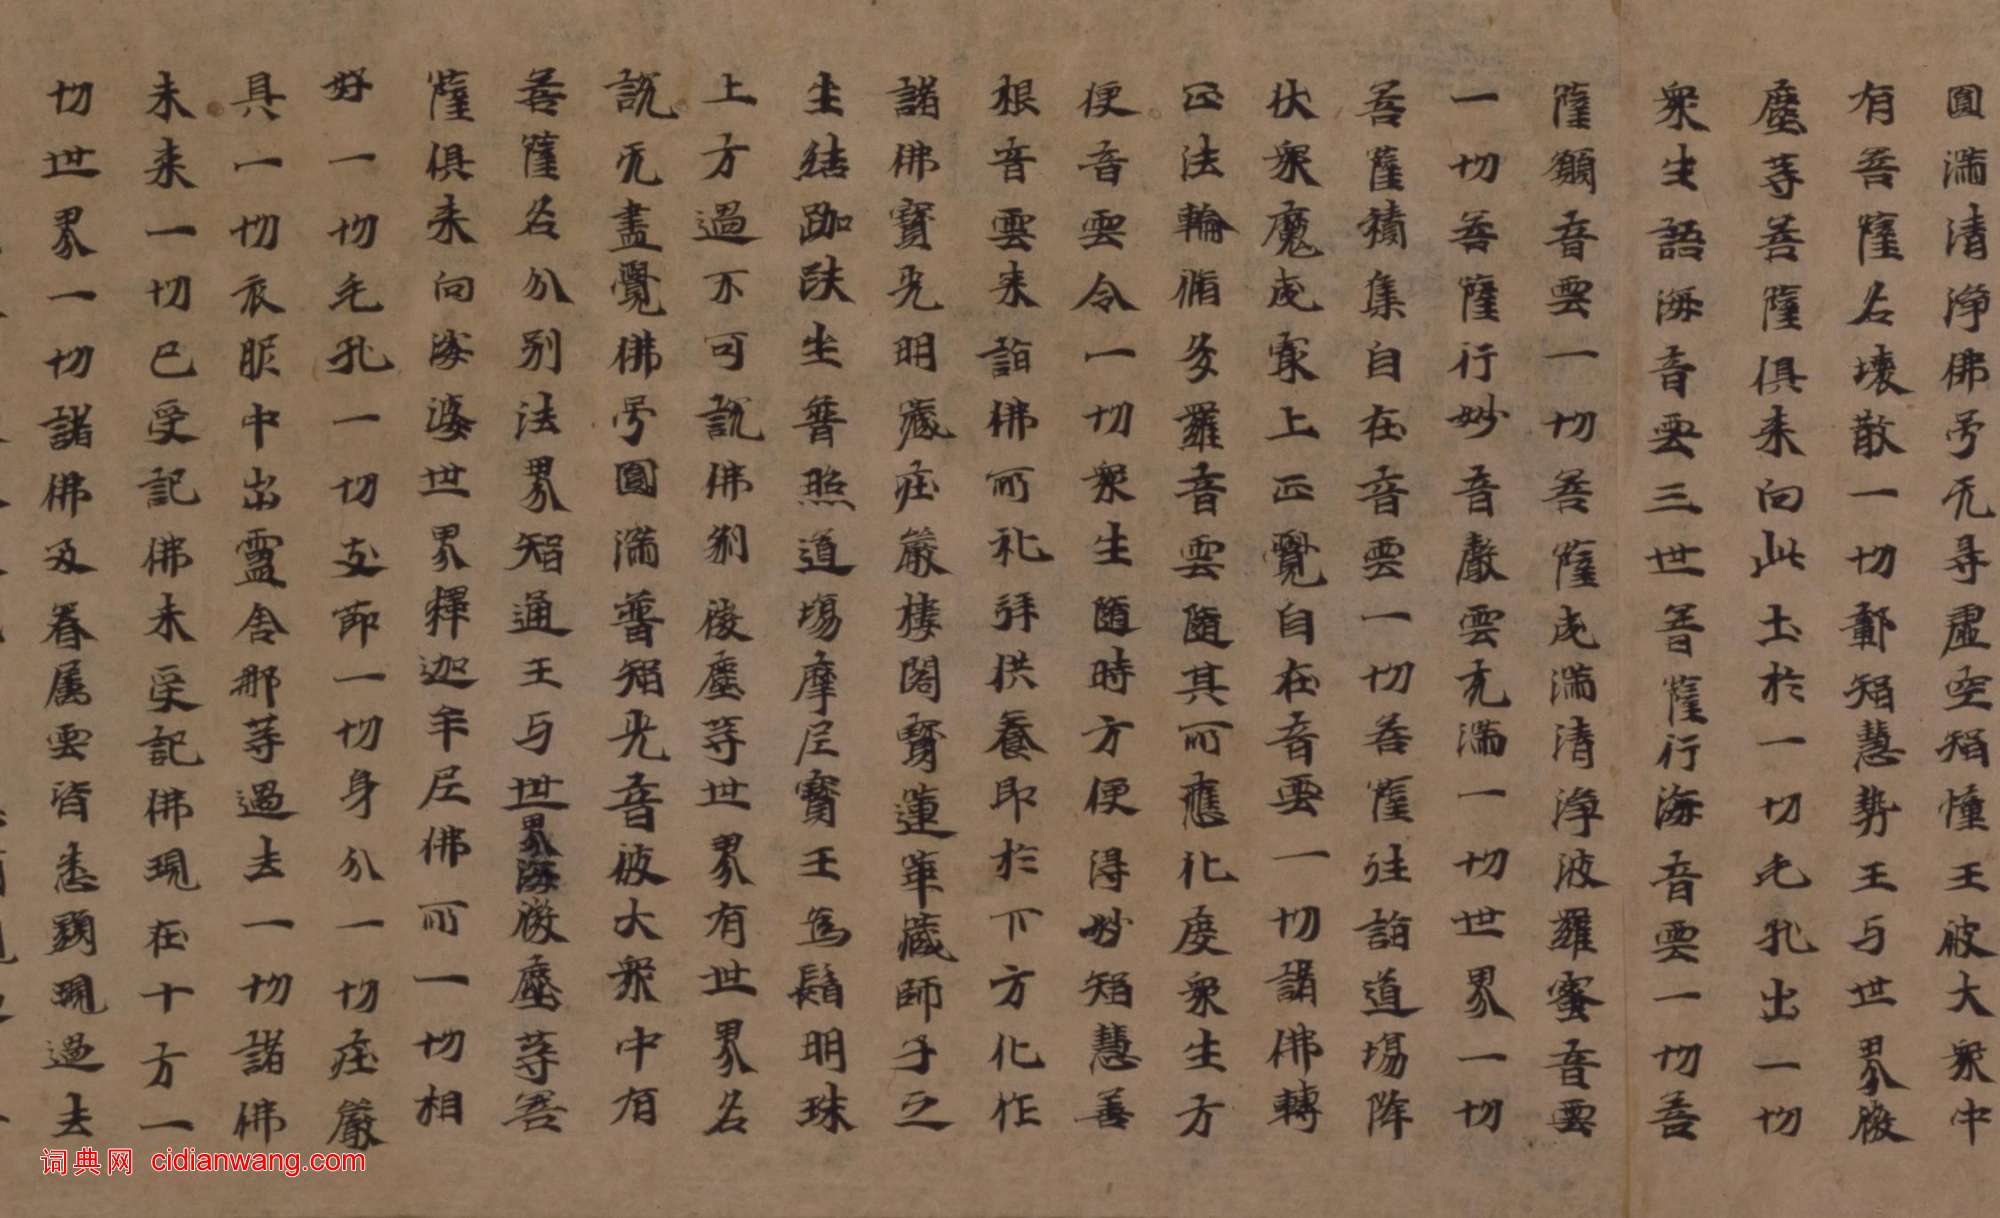 圓滿清淨佛号无㝵虛空智幢王彼大衆中
有菩薩名壞散一切鄣智慧勢王与世界微
塵等菩薩俱来向此土於一切毛孔出一切
衆生語海音雲三世菩薩行海音雲一切菩
薩願音雲一切菩薩成滿清淨波羅蜜音雲
一切菩薩行妙音聲雲充滿一切世界一切
菩薩積集自在音雲一切菩薩往詣道場降
伏衆魔成冣上正覺自在音雲一切諸佛轉
正法輪脩多羅音雲隨其所應化度衆生方
便音雲令一切衆生隨時方便得妙智慧善
根音雲来詣佛所礼拜供養即於下方化作
諸佛寶光明藏庄嚴樓閣寶蓮華藏師子之
坐結跏趺坐普照道場摩尼寶王為髻明珠
上方過不可說佛刹微塵等世界有世界名
說无盡覺佛号圓滿普智光音彼大衆中有
菩薩名分別法界智通王与世界海微塵等菩
薩俱来向娑婆世界釋迦牟尼佛所一切相
好一切毛孔一切支節一切身分一切庄嚴
具一切衣服中出盧舍那等過去一切諸佛
未来一切已受記佛未受記佛現在十方一
切世界一切諸佛及眷属雲皆悉顯現過去
词典网 cidianwang.com